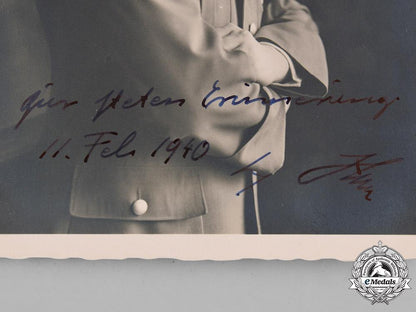 zur steten Erinnerung.
11. Feb. 1940
eMedals